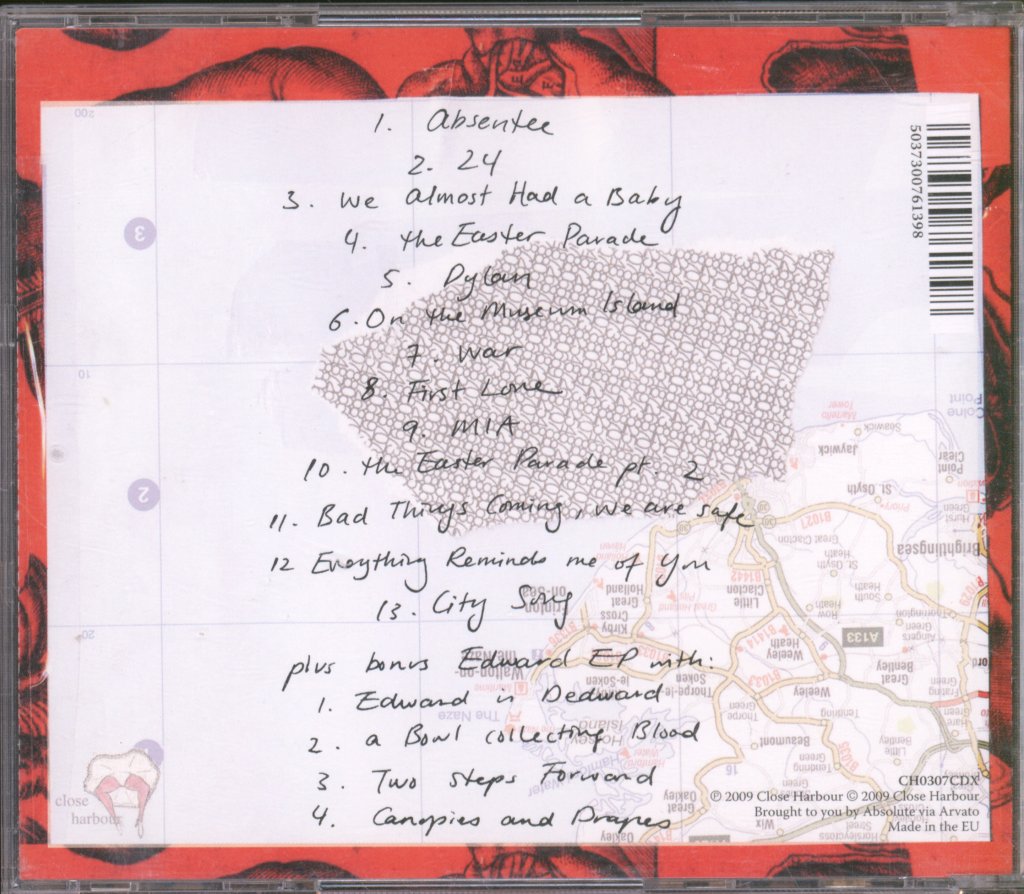 1. Absentee
2. 24
3. We Almost Had a Baby
4. the Easter Parade
5. Dylan
6. On the Museum Island
7. War
8. First Love
9. MIA
10. the Easter Parade pt. 2
11. Bad Things Coming, we are safe
12 Everything Reminds me of You
13. City Song
plus bonus Edward EP with:
1. Edward is Dedward
2. a Bowl collecting Blood
3. Two Steps Forward
4. Canopies and Drapes
5037300761398
close
harbour
CH0307CDX
℗ 2009 Close Harbour © 2009 Close Harbour
Brought to you by Absolute via Arvato
Made in the EU
200
3
10
2
20
Martello
Tower
Colne
Point
Seawick
Jaywick
Clear
Point
St. Osyth
Priory
B1027
Great Clacton
Brightlingsea
St. Osyth
Heath
South
Heath
Row
Heath
Thorrington
B1029
B1442
Little
Clacton
Great
Holland
Kirby
Cross
Frinton
-on-Sea
B1414
Weeley
Heath
A133
Aingers
Green
Great
Bentley
Frating
Green
B1033
Weeley
Thorpe-le-
Soken
Walton-
on-
the-Naze
The Naze
Tendring
Thorpe
Green
Beaumont
Tendring
Green
B1035
Little
Bentley
Horsey
Island
16
Great
Oakley
Wix
Horsleycross
Street